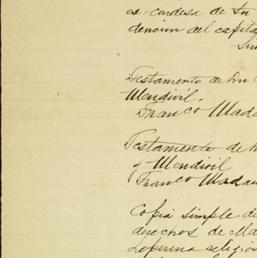 es condesa de Sn
dencion del capita
Testamento de Dn
Mendivil.
Franco Mada
Testamento de
y Mendivil
(Franco Madau
Copia simple de
derechos de Ma
religio